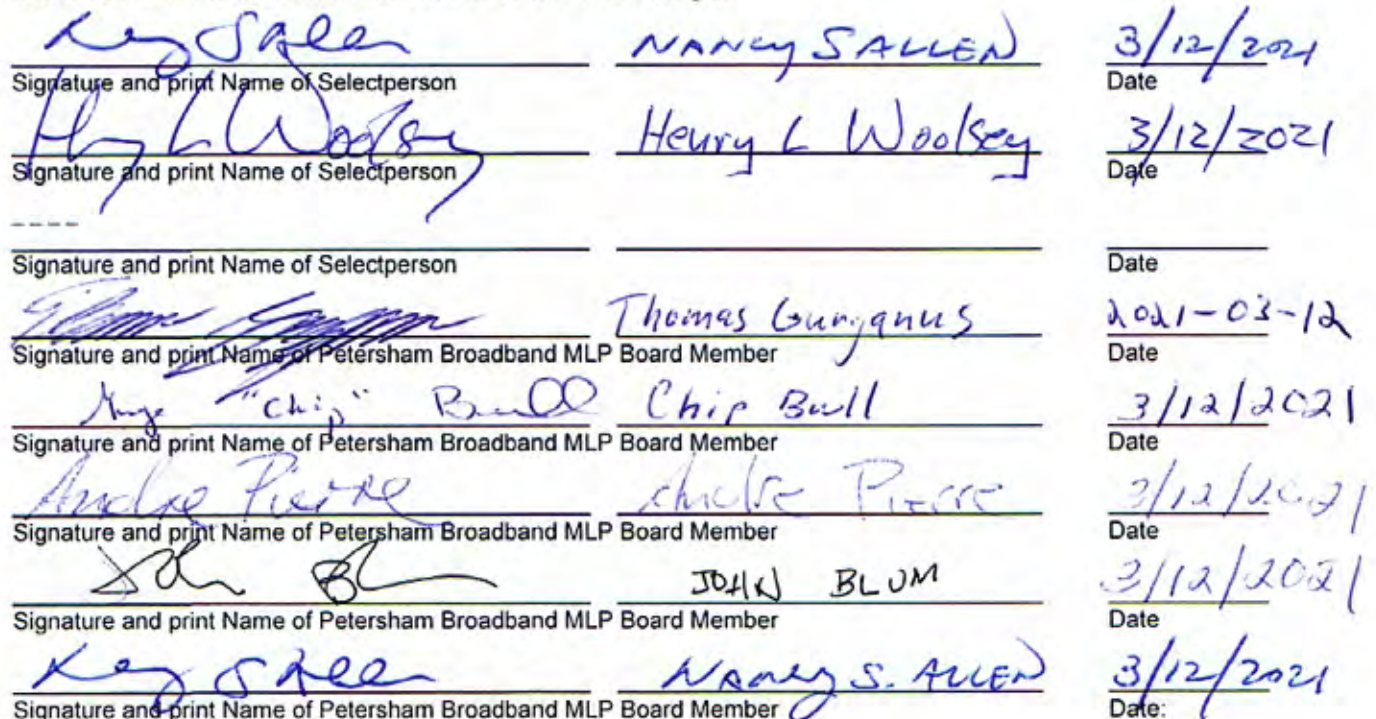 Nancy S Allen NANCY S ALLEN 3/12/2021
Signature and print Name of Selectperson Date
Henry L Woolsey Henry L Woolsey 3/12/2021
Signature and print Name of Selectperson Date
----
Signature and print Name of Selectperson Date
Thomas Gurganus 2021-03-12
Signature and print Name of Petersham Broadband MLP Board Member Date
"Chip" Bull Chip Bull 3/12/2021
Signature and print Name of Petersham Broadband MLP Board Member Date
Andre Pierre Andre Pierre 3/12/2021
Signature and print Name of Petersham Broadband MLP Board Member Date
John Blum JOHN BLUM 3/12/2021
Signature and print Name of Petersham Broadband MLP Board Member Date
Nancy S Allen NANCY S. ALLEN 3/12/2021
Signature and print Name of Petersham Broadband MLP Board Member Date: